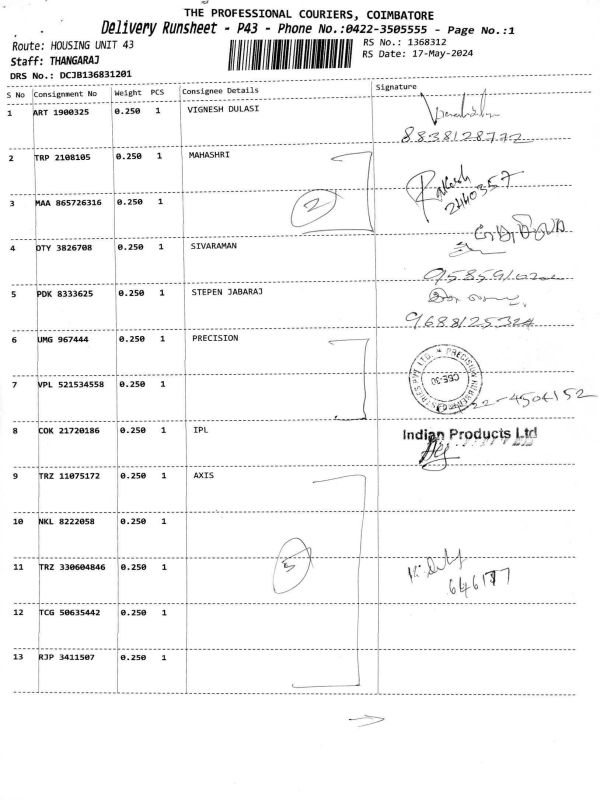 THE PROFESSIONAL COURIERS, COIMBATORE
Delivery Runsheet - P43 - Phone No.:0422-3505555 - Page No.:1
Route: HOUSING UNIT 43
RS No.: 1368312
Staff: THANGARAJ
RS Date: 17-May-2024
DRS No.: DCJB136831201
S No Consignment No Weight PCS Consignee Details Signature
1 ART 1900325 0.250 1 VIGNESH DULASI
8838128772
2 TRP 2108105 0.250 1 MAHASHRI
Rakesh
2440357
3 MAA 865726316 0.250 1
2
4 OTY 3826708 0.250 1 SIVARAMAN
5 PDK 8333625 0.250 1 STEPEN JABARAJ
6 UMG 967444 0.250 1 PRECISION
7 VPL 521534558 0.250 1
22-4504152
8 COK 21720186 0.250 1 IPL
Indian Products Ltd
9 TRZ 11075172 0.250 1 AXIS
10 NKL 8222058 0.250 1
11 TRZ 330604846 0.250 1
5
646177
12 TCG 50635442 0.250 1
13 RJP 3411507 0.250 1